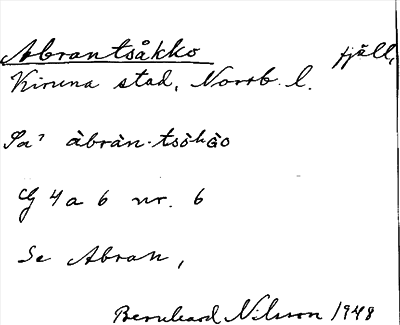 Abrantsåkko fjäll,
Kiruna stad, Norrb. l.
àbràn-tsòkGo
4 a 6 nr. 6
Se Abran,
Bernhard Nilsson 1948